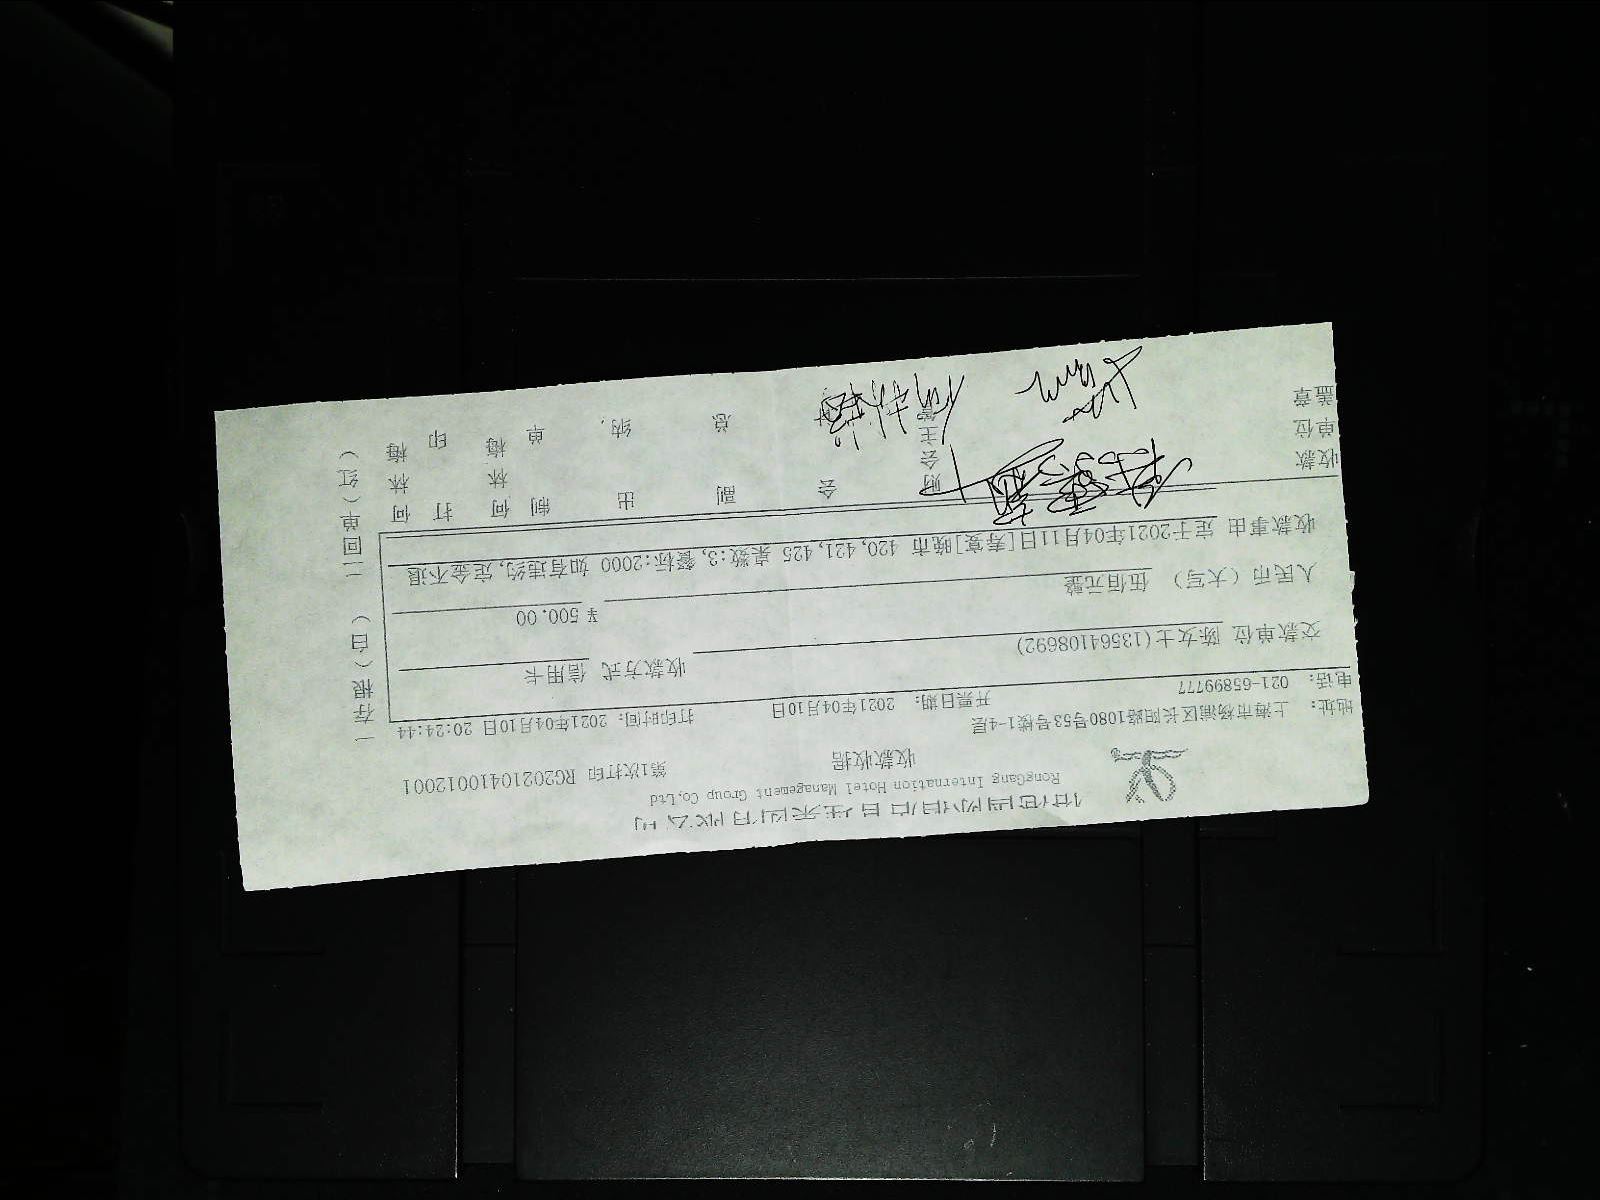 RongGang Internation Hotel Management Group Co,Ltd
收款收据
第1次打印 RG20210410012001
地址: 上海市杨浦区长阳路1080号53号楼1-4层
电话: 021-65899777
开票日期: 2021年04月10日
打印时间: 2021年04月10日 20:24:44
交款单位 陈女士(13564108692)
收款方式 信用卡
人民币(大写) 伍佰元整
¥500.00
收款事由 定于2021年04月11日[寿宴]晚市 420,421,425 桌数:3,餐标:2000 如有违约,定金不退
收款单位盖章
财会主管
会
副总
出纳
制单
何林梅
打印
何林梅
一存根(白) 二回单(红)